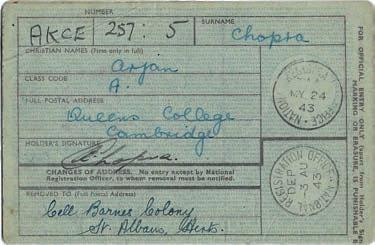 NUMBER
SURNAME
AKCE 257: 5
Chopra
CHRISTIAN NAMES (First only in full)
Arjan
CLASS CODE
A.
FULL POSTAL ADDRESS
Queens College
Cambridge
HOLDER'S SIGNATURE
A Chopra.
CHANGES OF ADDRESS. No entry except by National
Registration Officer, to whom removal must be notified.
REMOVED TO (Full Postal Address)
Cell Barnes Colony
St. Albans, Herts.
MY 24
43
OFFICE · NATION
NATIONAL REGISTRATION OFFICE
DEP
3 AU
43
FOR OFFICIAL ENTRY ONLY (apart from Holder's Sign
MARKING OR ERASURE, IS PUNISHABLE